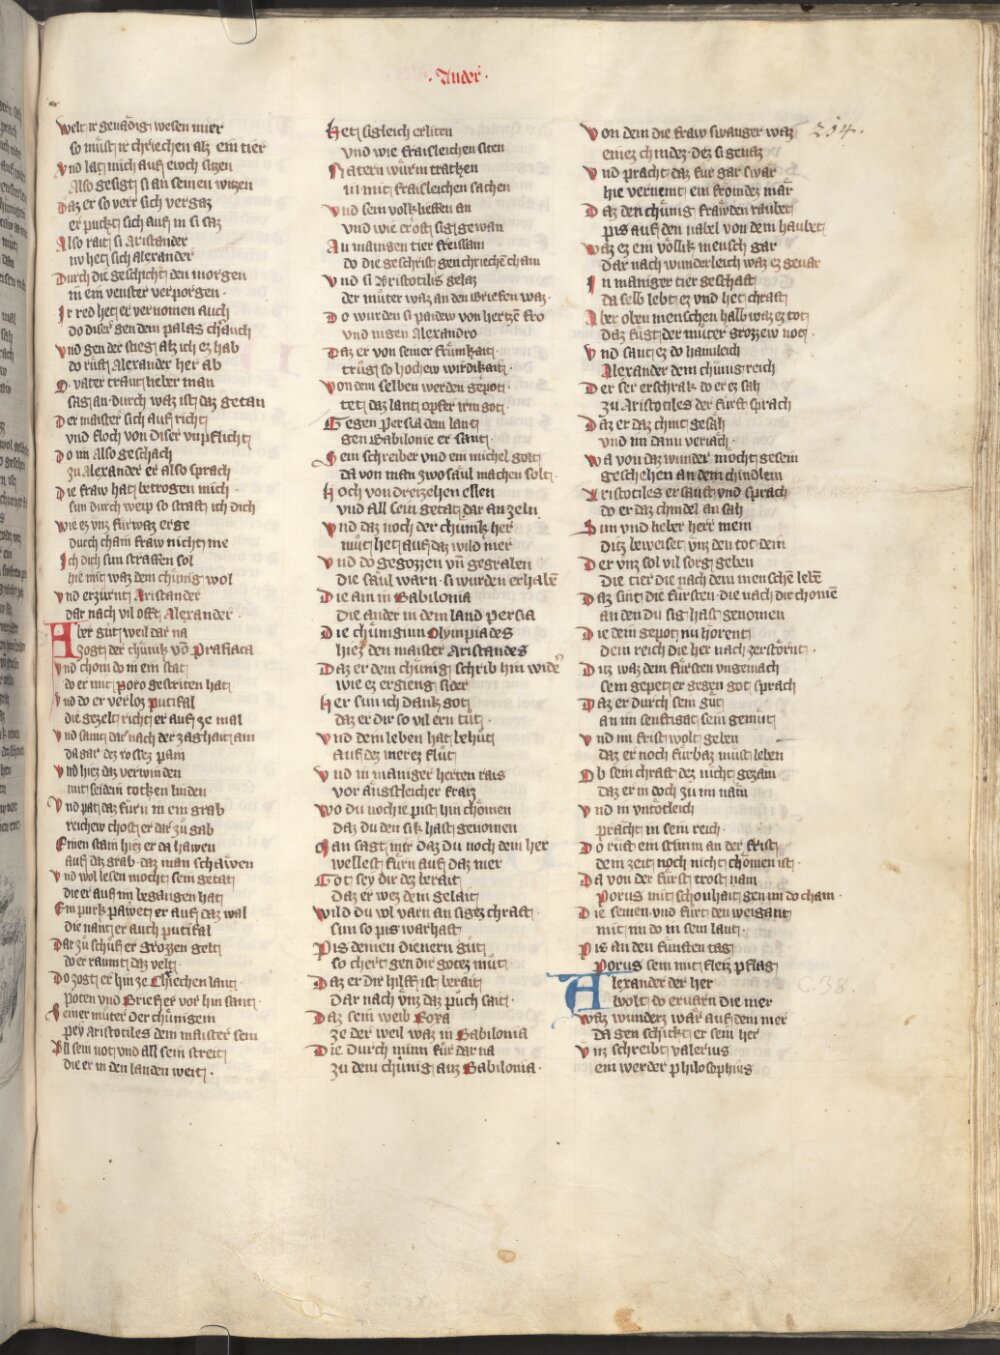 · Ander ·
254.
Welt ir genädig wesen mier
so müst ir chriechen alz ein tier
Vnd lat mich auf ewch sitzen
Also gesigt si an seinen witzen
Daz er so verr sich vergaz
er puckt sich auf in si saz
Also rait si Aristander
nv het sich Alexander
Durch die geschicht den morgen
in ein venster verporgen
Ir red het er vernomen auch
do diser gen dem palas chrauch
Vnd gen der stieg alz ich ez hab
do rüft Alexander her ab
O vater traut lieber man
sag an durch waz ist daz getan
Der maister sich auf richt
vnd floch von diser vnpflicht
Do im Also geschach
zu Alexander er also sprach
Die fraw hat betrogen mich
sun durch weip so straft ich dich
Wie ez vnz für waz erge
durch chain fraw nicht me
Ich dich sun straffen sol
hie mit waz dem chünig wol
Vnd erzürnt Aristander
dar nach vil offt Alexander
Aber güt weil dar na
zogt der chünik vo Prasiaca
Vnd chom do in ein stat
do er mit Poro gestriten hat
Vnd do er verloz Putifal
die gezelt richt er auf ze mal
Vnd samt dar nach der zaghait an
da gar dez rossez pain
Vnd hiez daz verwinden
mit seidein totken linden
Vnd pat daz fürn in ein grab
reichew chost er dar zü gab
Einen stain hiez er da hawen
auf daz grab daz man schawen
Vnd wol lesen mocht sein getat
die er auf im begangen hat
Ein purk pawet er auf daz wal
die nant er auch putifal
Dar zu schüf er grozzen gelt
do er raumt daz velt
Do zogt er hin ze Chriechen lant
poten vnd Briefer vor hin sant
Seiner müter der chüniginn
pey Aristotiles dem maister sein
All sein not vnd all sein streit
die er in den landen weit
Het sigleich erliten
vnd wie fraisleichen siten
Natern würm tratken
in mit fraisleichen sachen
Vnd sein volk lieffen an
vnd wie er oft sig gewan
An mangen tier freissam
do die geschrift gen chriechen cham
Vnd si Aristotilis gelaz
der müter waz an den Briefen waz
Do wurden si paidew von hertzen fro
vnd iagen Alexandro
Daz er von seiner frümkait
trüg so hochew wirdikait
Von dem selben werden gepot
tet daz lant opfer irm got
Gegen Persia dem lant
gen Babilonie er sant
Sein schreiber vnd ein michel golt
da von man zwo saul machen solt
Hoch von dreizehen ellen
vnd All sein getat dar an zeln
Vnd daz noch der chünik her
müt het auf daz wild mer
Vnd do gegozzen vn gegraben
die saul warn si wurden erhaben
Die ain in Babilonia
die ander in dem land Persia
Die chünigin Olympiades
hiez den maister Aristandes
Daz er dem chünig schrib hin wider
wie ez ergieng sider
Her sun ich dank got
daz er dir so vil ern tüt
Vnd dem leben hat behüt
auf dez merez flüt
Vnd in maniger herten rais
vor angstleicher fraiz
Wo du noch ie pist hin chömen
daz du den sik hast genomen
Man sagt mir daz du noch dem her
wellest fürn auf daz mer
Got sey dir dez berait
daz er wez dem gelait
Wild du wol varn an sigez chraft
sun so pis warhaft
Pis deinen dienern güt
so chert gen dir gotez müt
Daz er dir hilff ist berait
Dar nach vnz daz püch sait
Daz sein weib Roxa
ze der weil waz in Babilonia
Die durch minn für dar na
zu dem chünig auz Babilonia
Von dem die fraw swanger waz
einez chindez dez si genaz
Vnd pracht daz für gar swär
hie vernemt ein fromdez mär
Daz den chünig frawden raubet
pis auf den nabel von dem haubet
Waz ez ein vollik mensch gar
dar nach wunderleich waz ez gevar
In maniger tier geschaft
da selb lebt ez vnd het chraft
Aber oben menschen halb waz ez tot
daz fügt der müter grozzew not
Vnd sant ez do haimleich
Alexander dem chünig reich
Der ser erschrak do er ez sah
zu Aristotiles der fürst sprach
Daz er daz chint gesäh
vnd im dann veriäch
Wa von daz wunder mocht gesein
geschehen an dem chindlein
Aristotiles er sauft vnd sprach
do er daz chindel an sah
Sun vnd lieber herr mein
ditz beweiset vnz den tot dein
Der vnz sol vil sorg geben
die tier die nach dem menschen leben
Daz sint die fürsten die nach dir chomen
an den du sig hast genomen
Die deim gepot nu hörent
dein reich die her nach zerstörnt
Ditz waz dem fürsten vngemach
sein gepet er gegen got sprach
Daz er durch sein güt
an im senftigat sein gemüt
Vnd im frist wolt geben
daz er noch fürbaz müst leben
Ob sein chraft dez nicht gezam
daz er in doch zu im nam
Vnd in vntötleich
pracht in sein reich
Do rüft ein stimm an der frist
dein zeit noch nicht chömen ist
Da von der fürst trost nam
Porus mit schonhait gen im do cham
Die seinen vnd fürt den weigant
mit im do in sein lant
Pis an den fünften tag
Porus sein mit fleiz pflag
Alexander der her
wolt do ervarn die mer
Waz wunderz wär auf dem mer
da gen schickt er sein her
Vnz schreibt valerius
ein werder philosophius
C. 38.